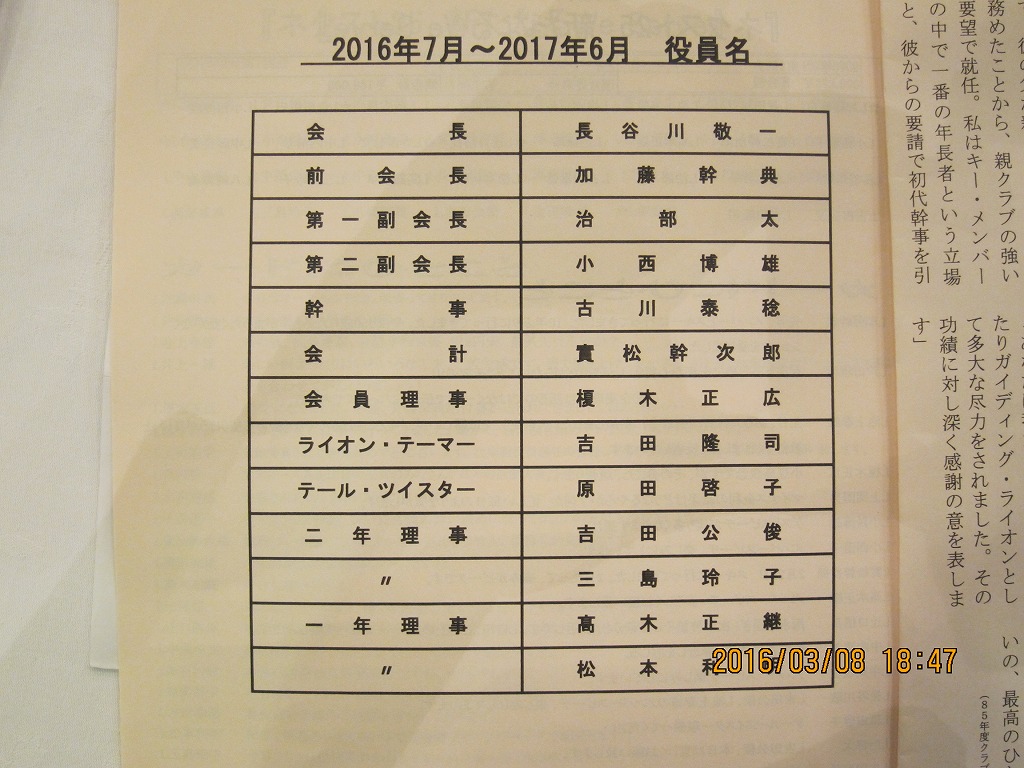 2016年7月～2017年6月　役員名
会長 長谷川敬一
前会長 加藤幹典
第一副会長 治部太
第二副会長 小西博雄
幹事 古川泰稔
会計 實松幹次郎
会員理事 榎木正広
ライオン・テーマー 吉田隆司
テール・ツイスター 原田啓子
二年理事 吉田公俊
〃 三島玲子
一年理事 高木正継
〃 松本和
2016/03/08 18:47
務めたことから、親クラブの強い
要望で就任。私はキー・メンバー
の中で一番の年長者という立場
と、彼からの要請で初代幹事を引
たりガイディング・ライオンとし
て多大な尽力をされました。その
功績に対し深く感謝の意を表しま
す」
いの、最高のひ
（85年度クラブ